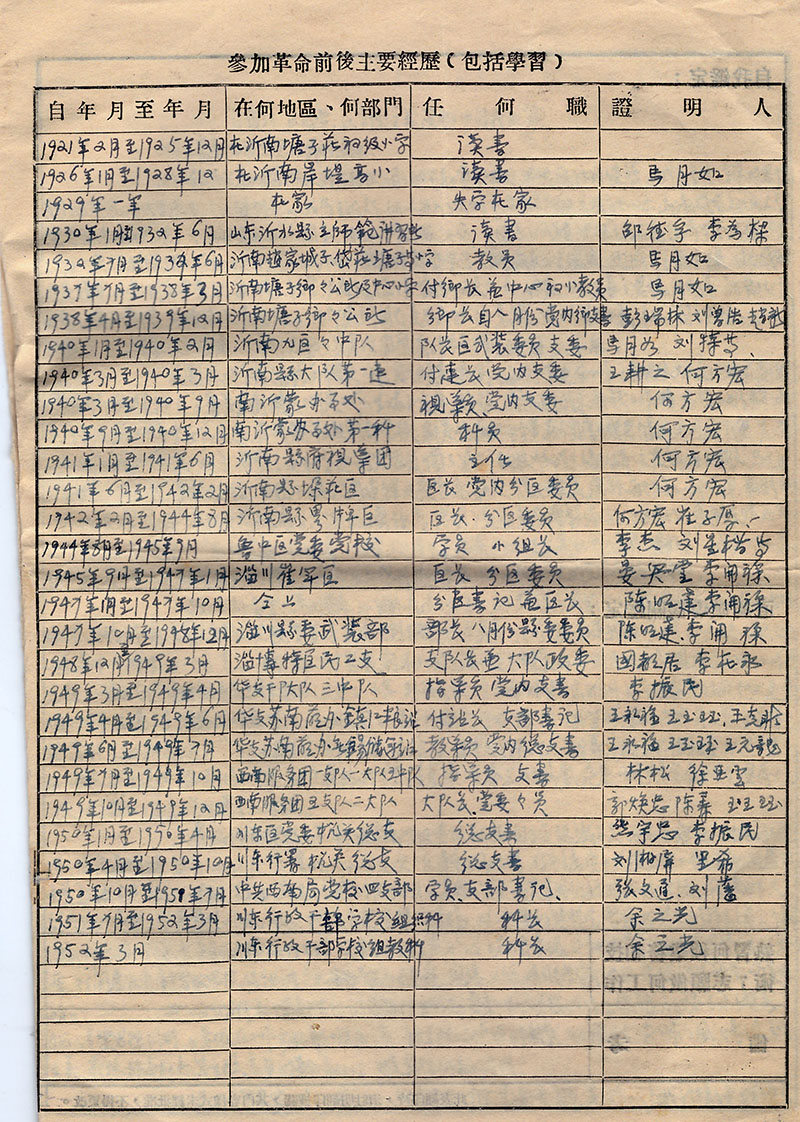 參加革命前後主要經歷（包括學習）
自年月至年月 在何地區、何部門 任何職 證明人
1921年2月至1925年12月 在沂南塘子莊初級小学 读書
1926年1月至1928年12 在沂南岸堤高小 读書 馬月如
1929年一年 在家 失学在家
1930年1月至1932年6月 山东沂水縣立師範講習所 读書
1932年7月至1937年6月 沂南 教員 馬月如
1937年7月至1938年3月 沂南塘子鄉々公所 付鄉长兼中心初小教員 馬月如
1938年4月至1939年12月 沂南塘子鄉々公所 鄉长自八月份党内
1940年1月至1940年2月 沂南九区々中队 队长区武装委員支委
1940年3月至1940年3月 沂南縣大队第一連 付連长党内支委 王耕之 何方宏
1940年3月至1940年9月 南沂蒙办事处 視導員、党内支委 何方宏
1940年9月至1940年12月 南沂蒙办事处第一科 科員 何方宏
1941年1月至1941年6月 沂南縣府視導團 主任 何方宏
1941年6月至1942年2月 沂南縣垛莊区 区长 党内分区委員 何方宏
1942年2月至1944年8月 沂南縣界牌区 区长、分区委員 何方宏 崔子厚
1944年8月至1945年9月 魯中区党委党校 学員 小組长 李杰
1945年9月至1947年1月 淄川崔軍区 区长 分区委員
1947年1月至1947年10月 仝上 分区書记兼区长 陈明達
1947年10月至1948年12月 淄川縣委武裝部 部长八月份縣委委員 陈明達
1948年12月至1949年3月 淄博特区民工支 支队长兼大队政委
1949年3月至1949年4月 华支干大队三中队 指導員 党内支書 李振民
1949年4月至1949年6月 华支苏南前办鎮江 付 长 支部書记 王永福
1949年6月至1949年7月 华支苏南前办無錫 教導員 党内總支書 王永福
1949年7月至1949年10月 西南服务團一支队一大队三中队 指導員 支書 林松 徐亚雲
1949年10月至1949年12月 西南服务團三支队二大队 大队长、党委々員
1950年1月至1950年4月 川东区党委机关總支 總支書 李振民
1950年4月至1950年10月 川东行署机关總支 總支書 刘
1950年10月至1951年7月 中共西南局党校四支部 学員、支部書记、 張文通、刘
1951年7月至1952年3月 川东行政干部学校組织科 科长 余之光
1952年3月 川东行政干部学校組教科 科长 余之光